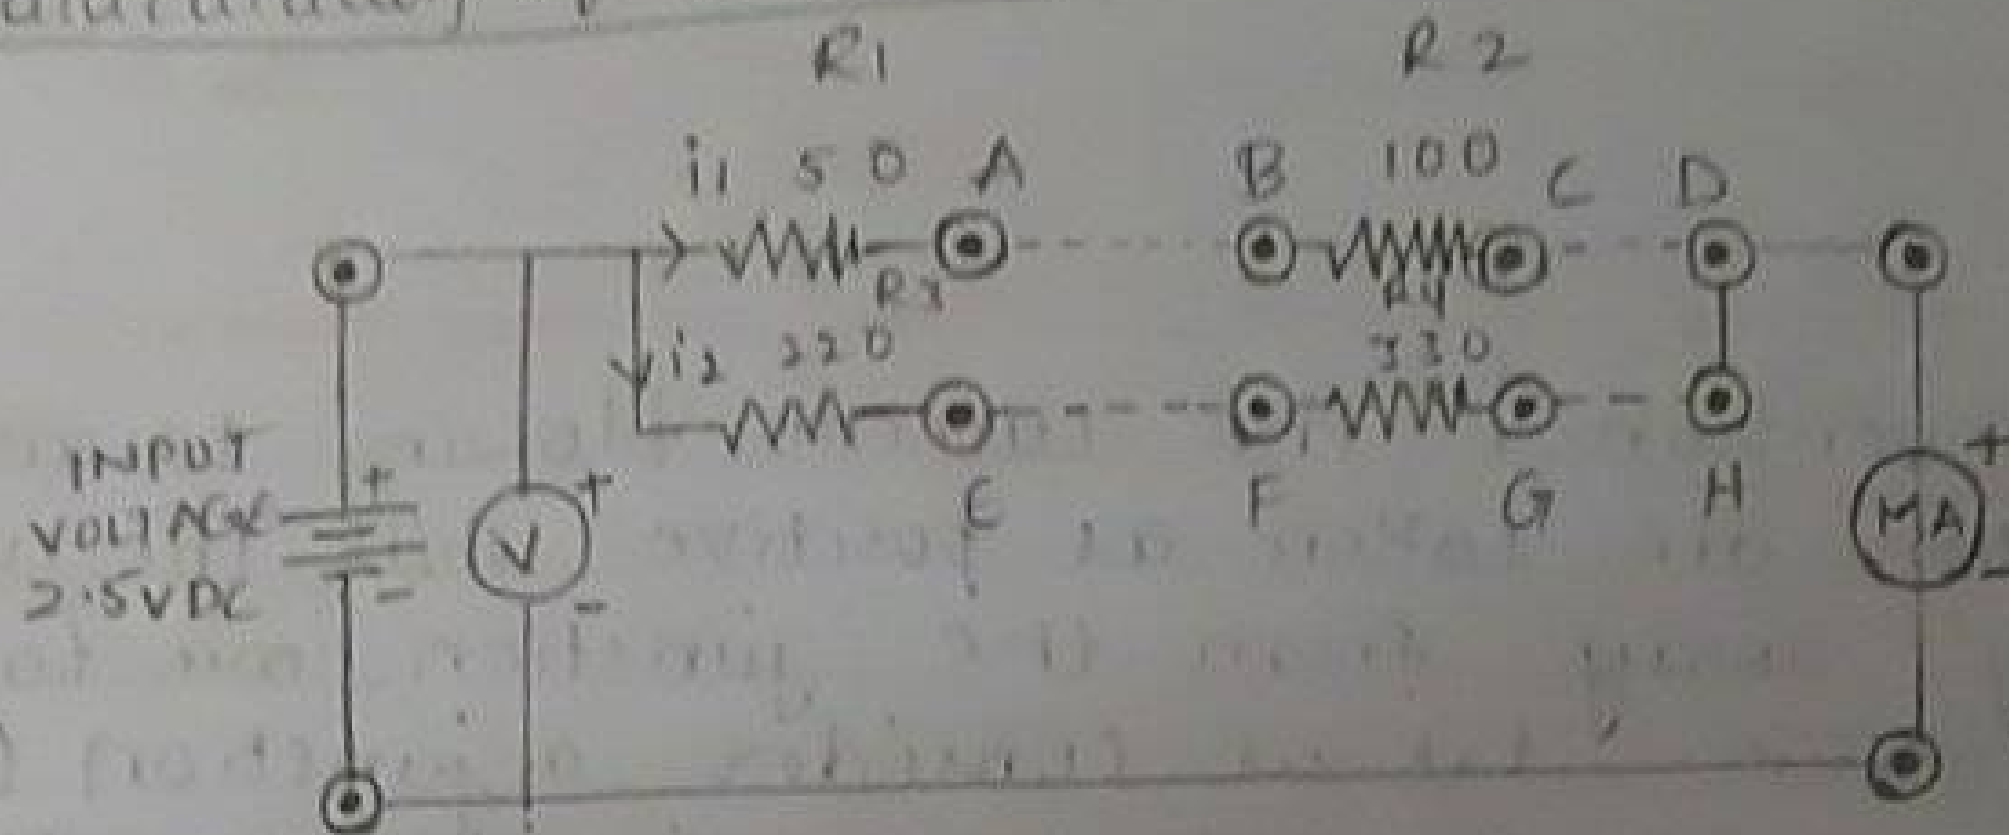 R1 R2
i1 50 A B 100 C D
R3 R4
i2 220 330
E F G H
INPUT
VOLTAGE
2.5VDC
+
-
V
+
-
MA
+
-